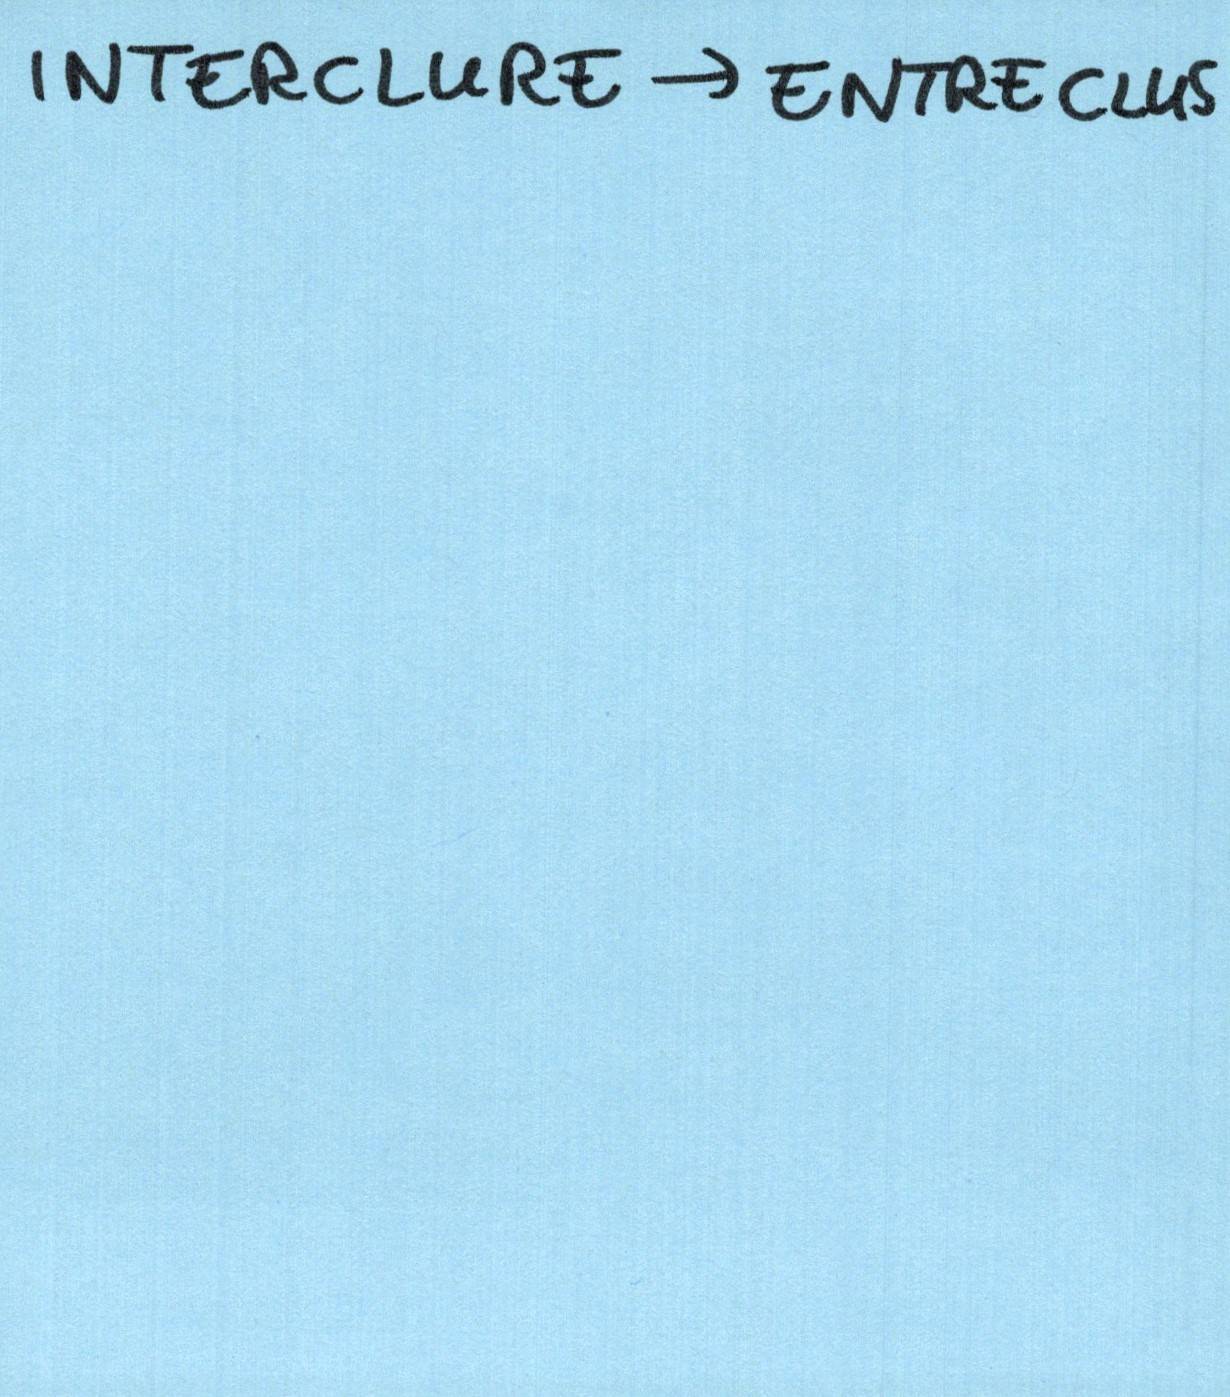 INTERCLURE → ENTRECLUS